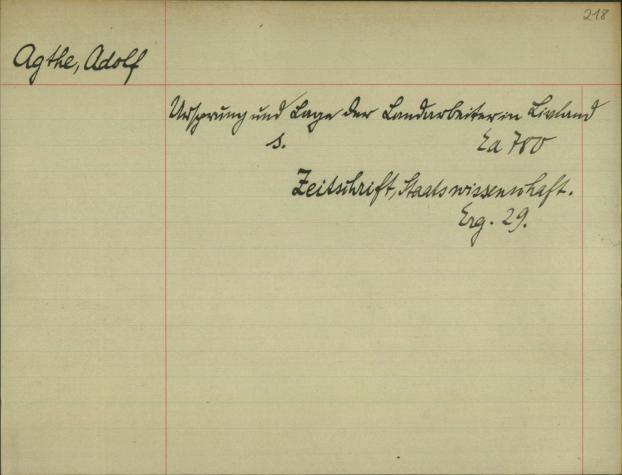 218
Agthe, Adolf
Ursprung und Lage der Landarbeiter in Livland
s. Ea 780
Zeitschrift, Staatswissenschaft.
Erg. 29.